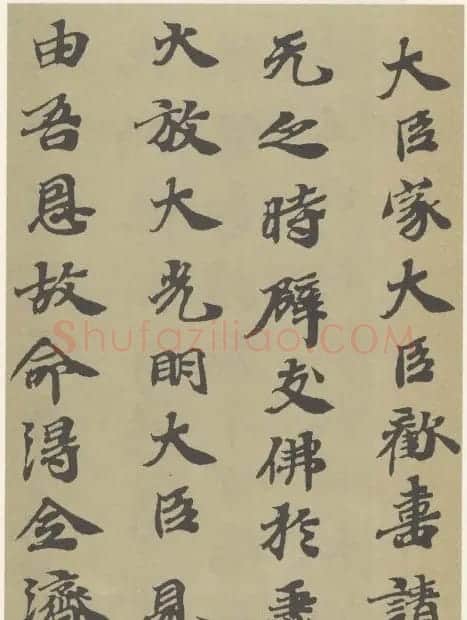 大臣家大臣歡喜請
无之時辟支佛於
火放大光明大臣見
由吾恩故命得全濟
Shufaziliao.COM